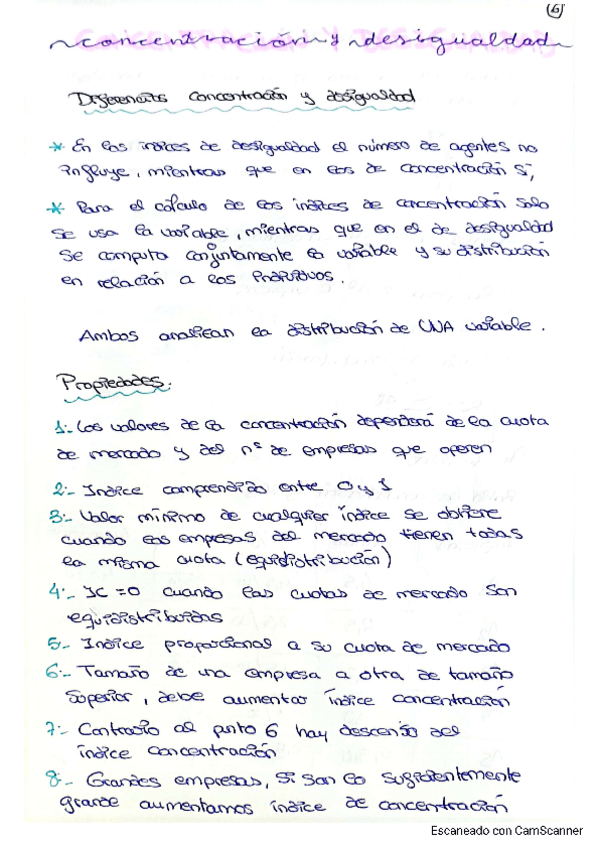 6
concentración y desigualdad
Diferencias concentración y desigualdad
* En los índices de desigualdad el número de agentes no
influye, mientras que en los de concentración sí,
* Para el cálculo de los índices de concentración solo
se usa la variable, mientras que en el de desigualdad
se computa conjuntamente la variable y su distribución
en relación a los individuos.
Ambos analizan la distribución de UNA variable.
Propiedades:
1:- Los valores de la concentración dependerá de la cuota
de mercado y del nº de empresas que operen
2:- Indice comprendido entre 0 y 1
3:- Valor mínimo de cualquier índice se obtiene
cuando las empresas del mercado tienen todas
la misma cuota (equidistribución)
4:- IC = 0 cuando las cuotas de mercado son
equidistribuidas
5:- Indice proporcional a su cuota de mercado
6:- Tamaño de una empresa a otra de tamaño
superior, debe aumentar índice concentración
7:- Contrario al punto 6 hay descenso del
índice concentración
8:- Grandes empresas, si son lo suficientemente
grande aumentamos índice de concentración
Escaneado con CamScanner